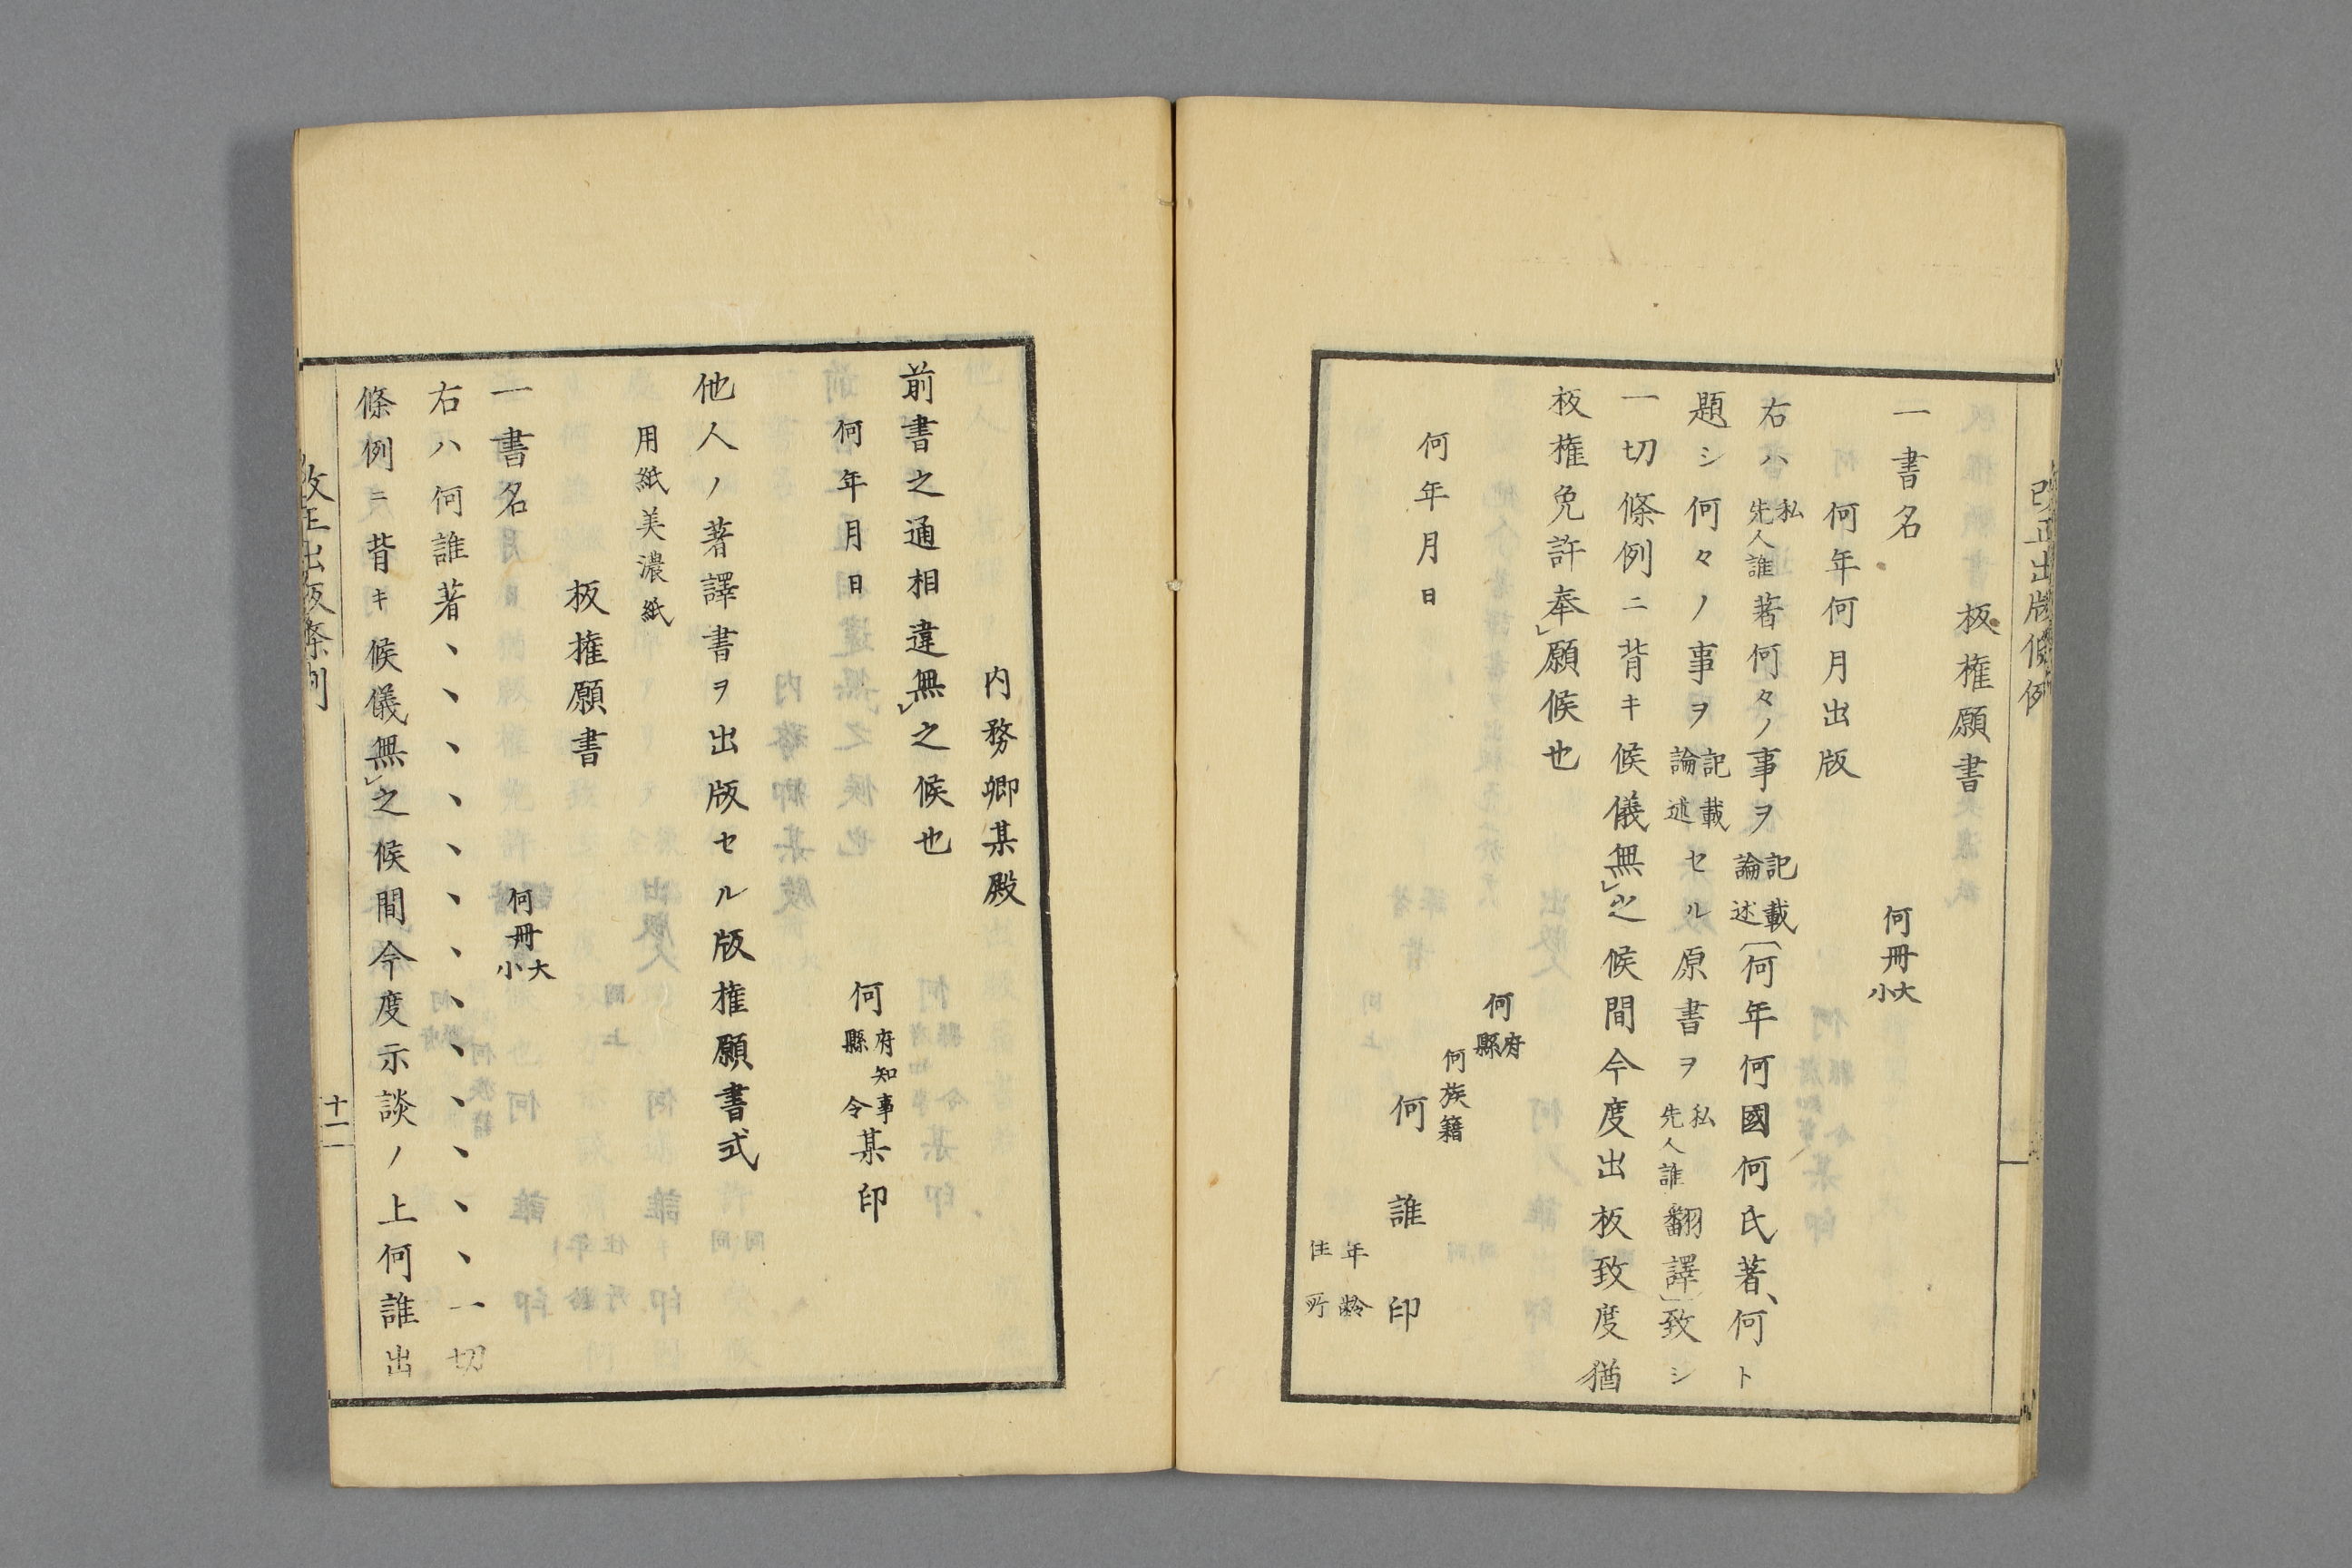 改正出版條例
板権願書
一書名 何冊大小
何年何月出版
右ハ私先人誰著何々ノ事ヲ記載論述〔何年何國何氏著、何ト
題シ何々ノ事ヲ記載論述セル原書ヲ私先人誰翻譯〕致シ
一切條例ニ背キ候儀無レ之候間今度出板致度猶
板権免許奉レ願候也
何府縣
何族籍
何年月日 何誰印
年齢
住所
内務卿某殿
前書之通相違無レ之候也
何年月日 何府知事縣令某印
他人ノ著譯書ヲ出版セル版権願書式
用紙美濃紙
板権願書
一書名 何冊大小
右ハ何誰著、、、、、、、、、、、、、一切
條例ニ背キ候儀無レ之候間今度示談ノ上何誰出
改正出版條例
十一